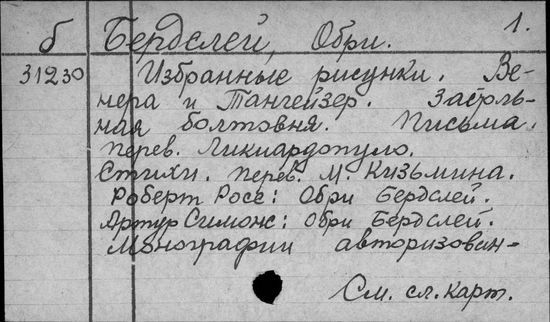 1.
б Бердслей, Обри.
31230 Избранные рисунки. Ве-
нера и Тангейзер. Застоль-
ная болтовня. Письма.
перев. Ликиардопуло.
Стихи. перев. М. Кизьмина.
Роберт Росс: Обри Бердслей.
Артур Симонс: Обри Бердслей.
Монографии авторизован-
См. сл. карт.